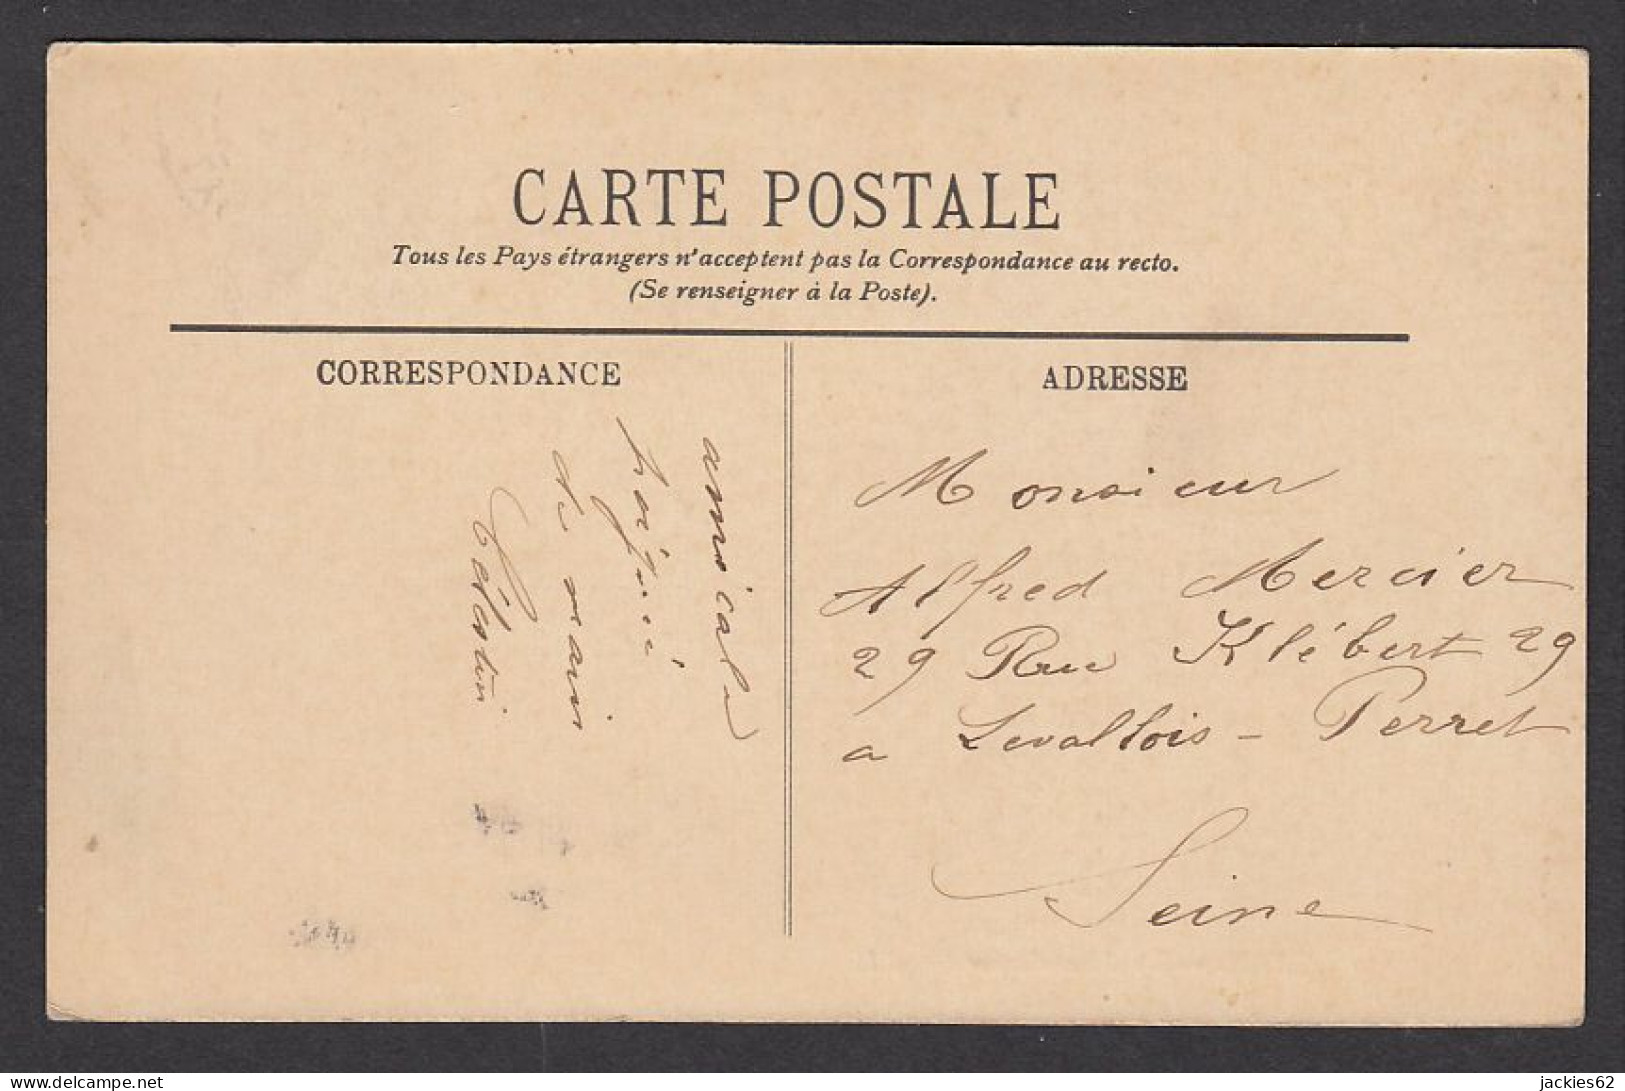 CARTE POSTALE
Tous les Pays étrangers n'acceptent pas la Correspondance au recto.
(Se renseigner à la Poste).
CORRESPONDANCE
amicale
poignée
de main
Célestin
ADRESSE
Monsieur
Alfred Mercier
29 Rue Klébert 29
a Levallois - Perret
Seine
www.delcampe.net
jackies62